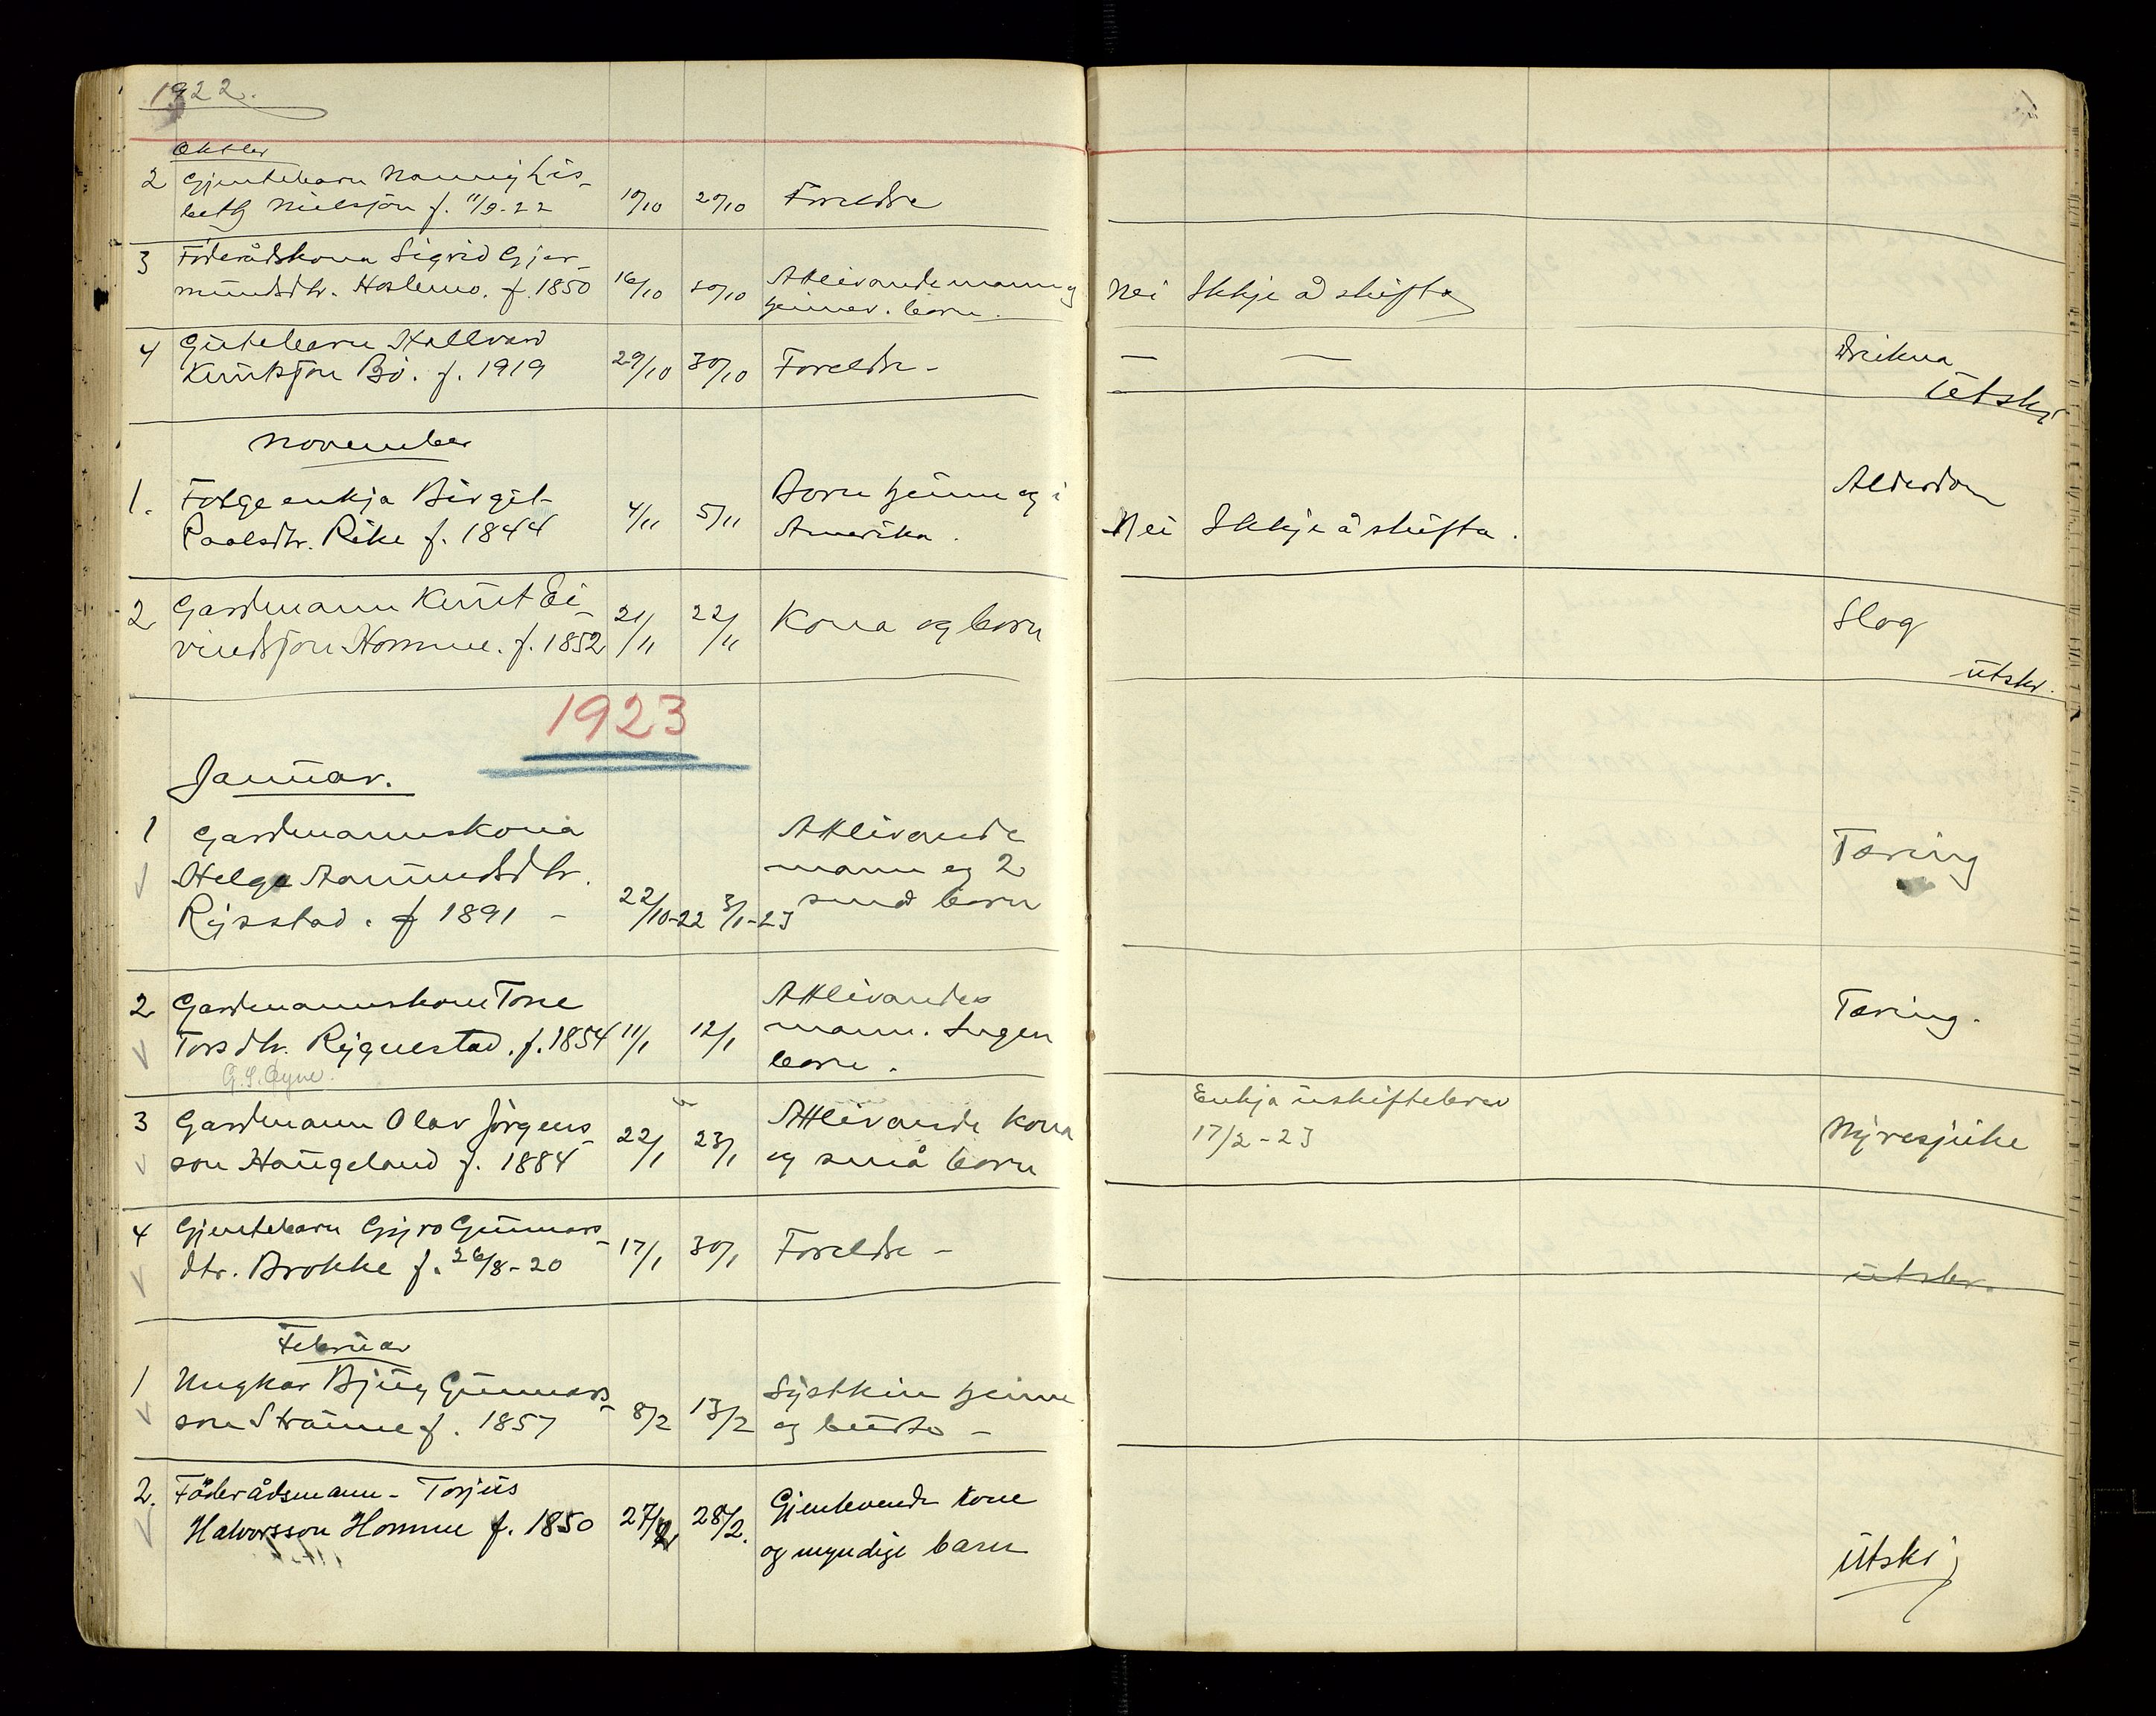 1922.
Oktber
2 Gjentebarn Nanny Lis-
beth Nielsjon f. 11/9-22 19/10 20/10 Foreldre
3 Föderådskona Sigrid Gjer-
mundsdtr. Hoslemo. f. 1850 16/10 20/10 Attlivande mann og
hennes born. Nei Ikkje å skifta
4 Gutebarn Hallvard
Knutsson Bö. f. 1919 29/10 30/10 Foreldre - — — Drukna
utskr
November
1. Folgeenkja Birgit
Paalsdtr. Rike f. 1844 4/11 5/11 Born heime og i
Amerika. Nei Ikkje å skifta. Alderdom
2 Gardmann Knut Ei-
vindsson Homme. f. 1852 21/11 22/11 Kona og born Slag
utskr.
1923
Januar.
1 Gardmannskona
Helga Aamundsdtr.
Rysstad. f 1891 - 22/10-22 3/1-23 Attlivande
mann og 2
små born Tæring
2 Gardmannskona Tone
Torsdtr. Rygnestad. f. 1854 11/1 12/1 Attlivandes
mann. Ingen
born. Tæring.
3 Gardmann Olav Jörgens-
son Haugeland f. 1884 22/1 23/1 Attlivande kona
og små born Enkja uskiftebrev
17/2-23 Nyresjuke
4 Gjentebarn Gyro Gunnars-
dtr. Brokke f. 26/8-20 17/1 30/1 Foreldre -
utskr.
Februar
1 Ungkar Bjug Gunnars-
son Straume f. 1857 8/2 13/2 Systkin heime
og burte -
2. Föderådsmann - Torjus
Halvorsson Homme f. 1850 27/2 28/2. Gjenlevende kone
og myndige barn
utskr